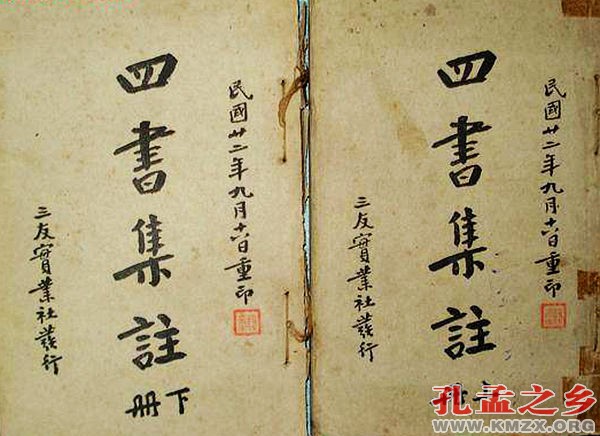 民國廿二年九月十六日重印
四書集註
上册
三友實業社發行
民國廿二年九月十六日重印
四書集註
下册
三友實業社發行
孔孟之乡
WWW.KMZX.ORG